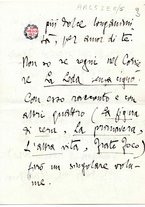 più dolce longanimi-
tà, per amor di te.
Non so se segni nel Cor-
re La Leda senza cigno.
Con esso racconto e con
altri quattro (La figura
di cera, La primavera,
L'altra vita,
farò un singolare volu-
me.